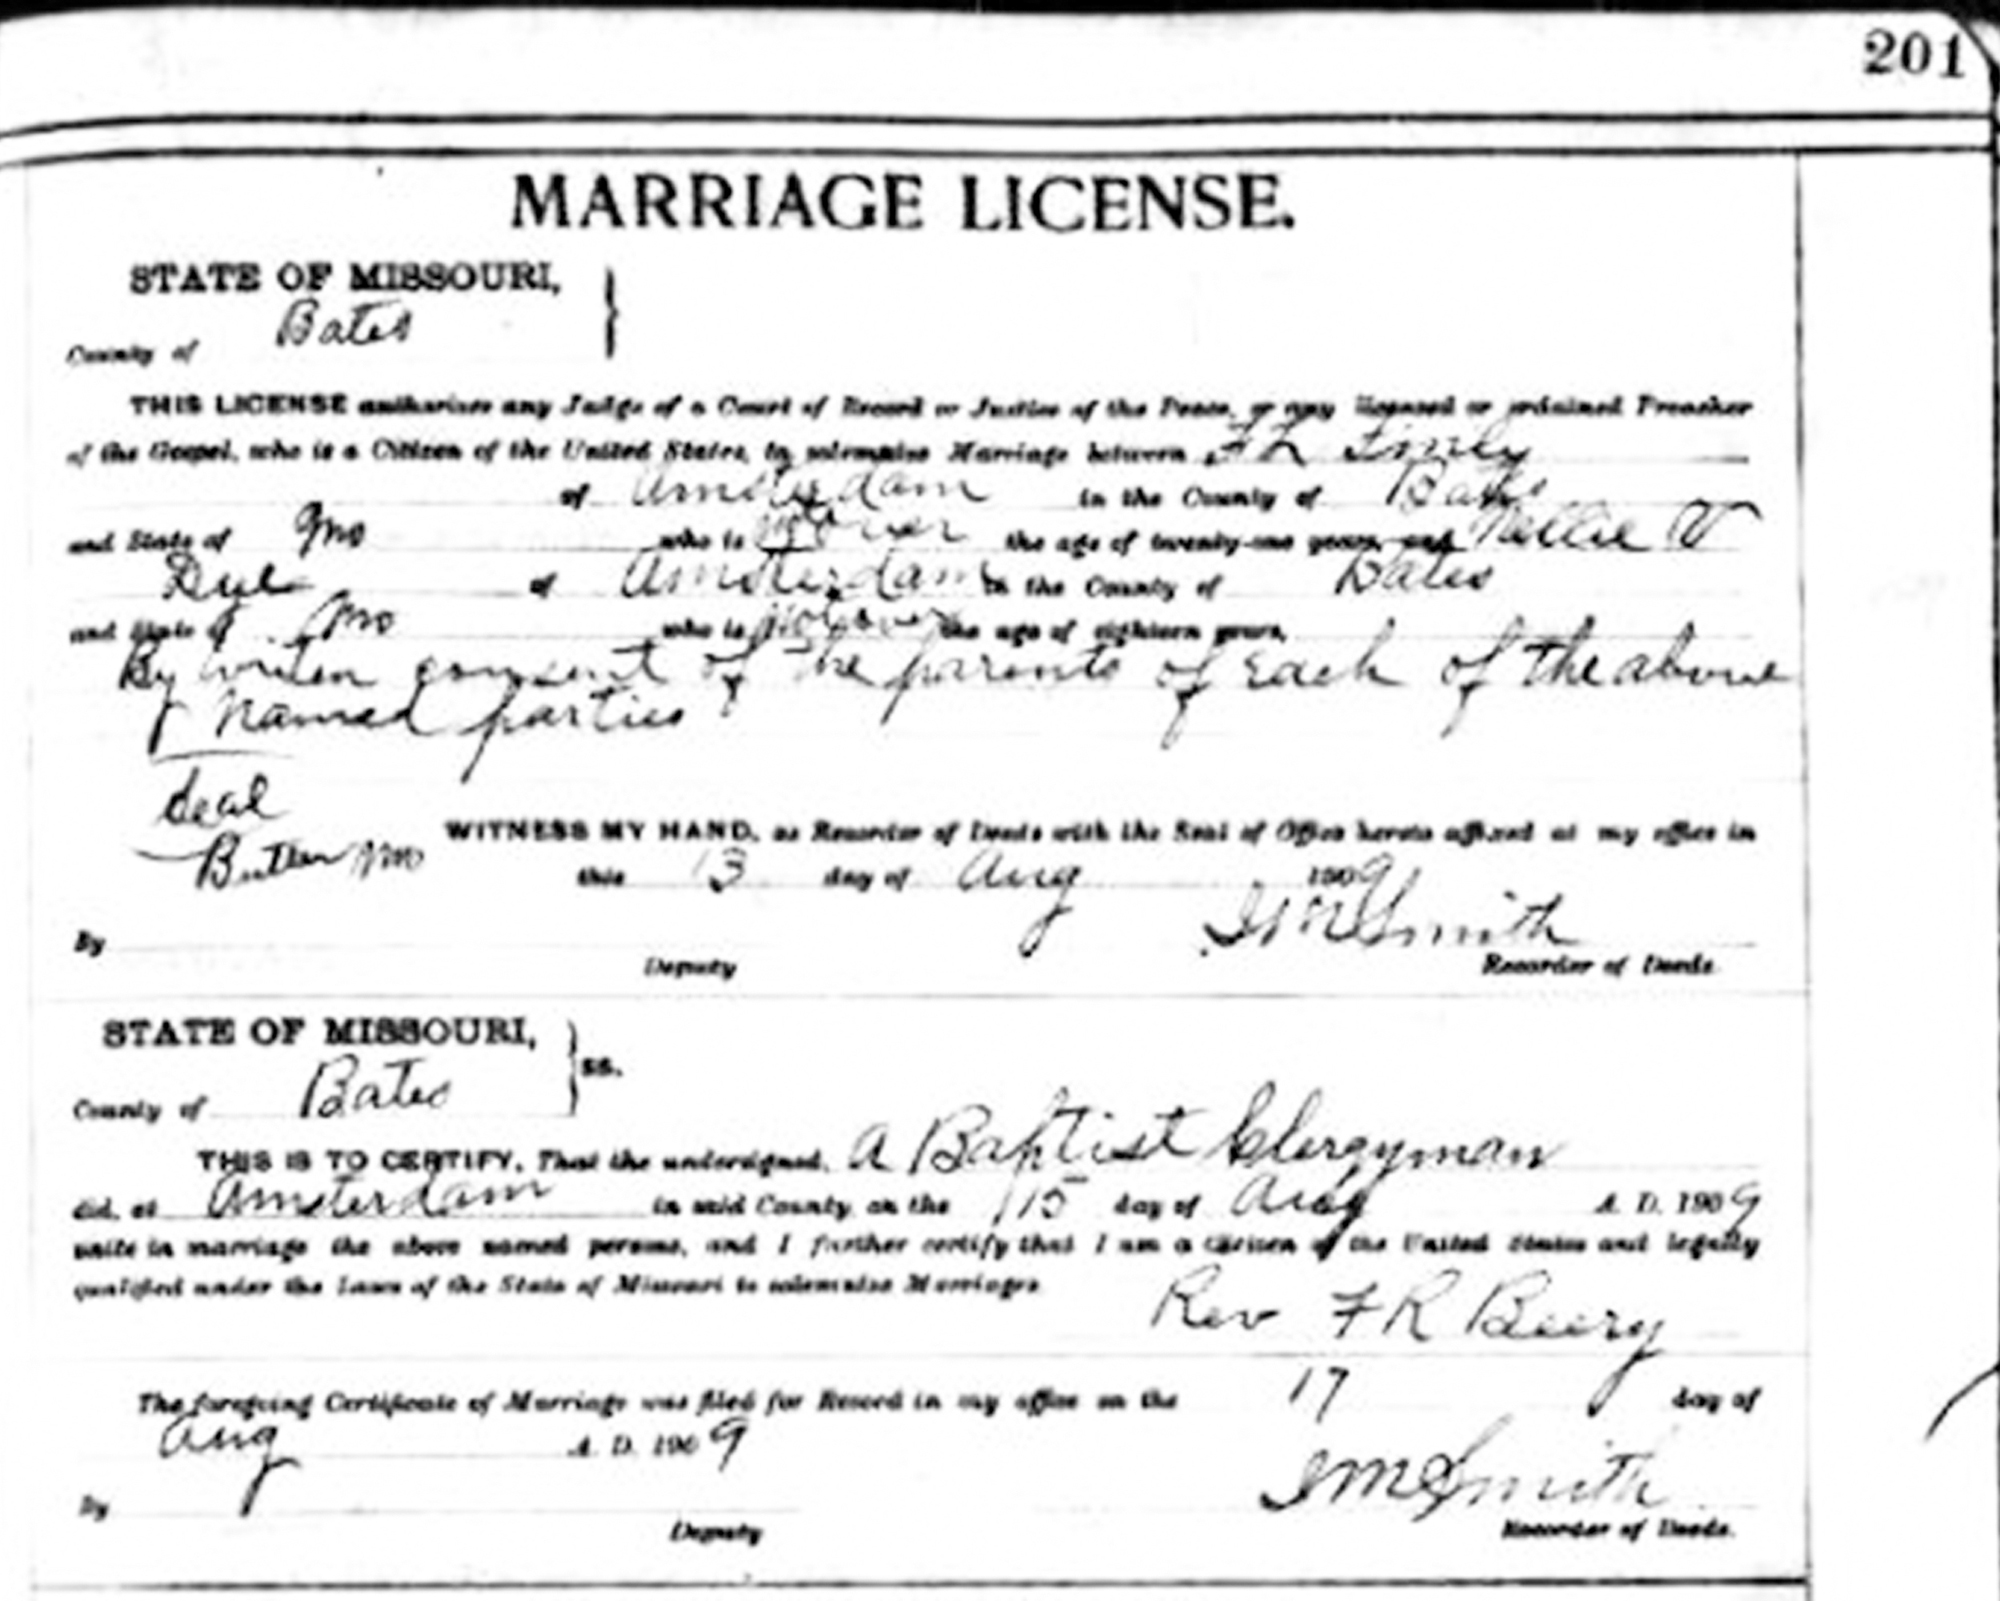 201
MARRIAGE LICENSE.
STATE OF MISSOURI,
County of Bates
THIS LICENSE authorizes any Judge of a Court of Record or Justice of the Peace, or any licensed or ordained Preacher
of the Gospel, who is a Citizen of the United States, to solemnize Marriage between F L
of Amsterdam in the County of Bates
and State of Mo who is not over the age of twenty-one years, and Nellie V
Dye of Amsterdam in the County of Bates
and State of Mo who is not over the age of eighteen years,
By writen consent of the parents of Each of the above
named parties
Seal
Butler Mo
WITNESS MY HAND, as Recorder of Deeds with the Seal of Office hereto affixed at my office in
this 13 day of Aug 1909
Smith
By
Deputy Recorder of Deeds.
STATE OF MISSOURI,
ss.
County of Bates
THIS IS TO CERTIFY, That the undersigned, A Baptist Clergyman
did, at Amsterdam in said County, on the 15 day of Aug A. D. 1909
unite in marriage the above named persons, and I further certify that I am a Citizen of the United States and legally
qualified under the Laws of the State of Missouri to solemnize Marriages
Rev F R Beery
The foregoing Certificate of Marriage was filed for Record in my office on the 17 day of
Aug A. D. 1909
Smith
By
Deputy Recorder of Deeds.